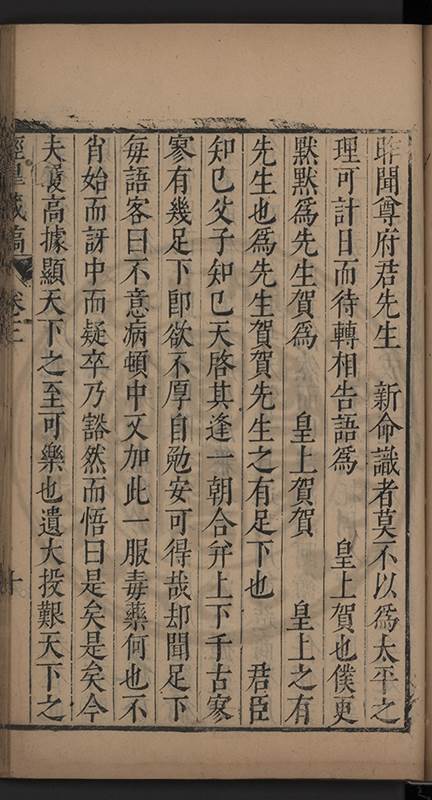 昨聞尊府君先生　新命識者莫不以爲太平之
理可計日而待轉相告語爲　皇上賀也僕更
默默爲先生賀爲　皇上賀賀　皇上之有
先生也爲先生賀賀先生之有足下也　君臣
知已父子知已天啓其逢一朝合幷上下千古寥
寥有幾足下卽欲不厚自勉安可得哉却聞足下
每語客曰不意病頓中又加此一服毒藥何也不
肖始而訝中而疑卒乃豁然而悟曰是矣是矣今
夫履高據顯天下之至可樂也遺大投艱天下之
涇臯藏稿　卷二　十